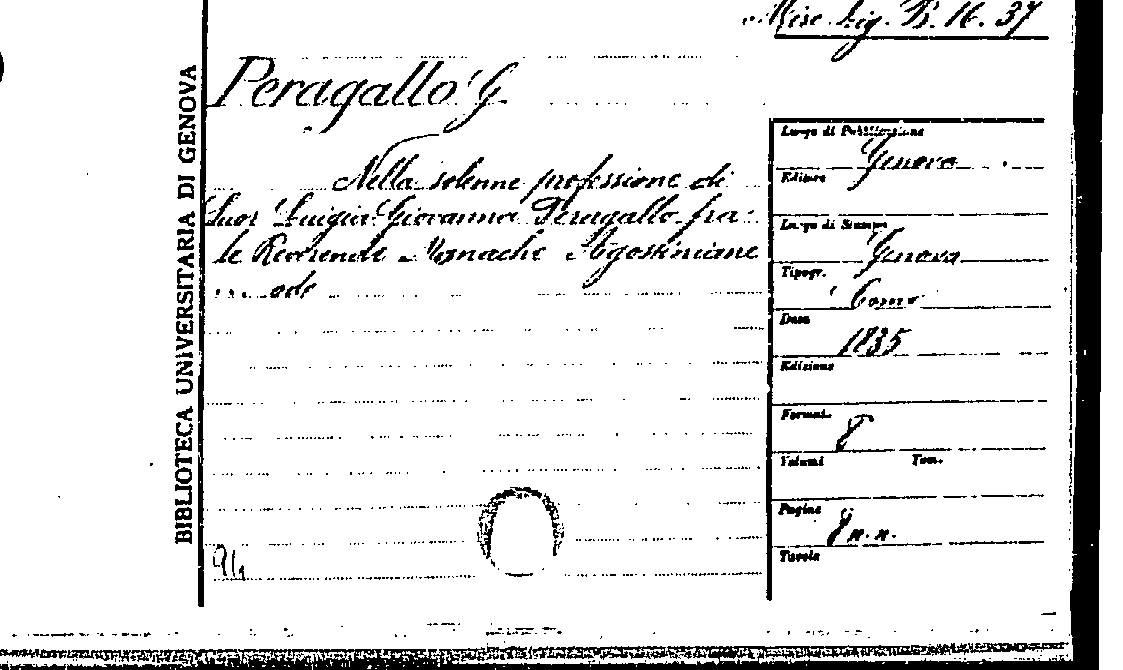 Misc. Lig. B. 16. 37
BIBLIOTECA UNIVERSITARIA DI GENOVA
Peragallo G.
Nella solenne professione di
Suor Luigia Giovanna Peragallo fra
le Reverende Monache Agostiniane
ode
Luogo di Pubblicazione
Genova
Editore
Luogo di Stampa
Genova
Tipogr.
Data
1835
Edizione
Format.
8
Volumi Tom.
Pagine
8 n. n.
Tavole